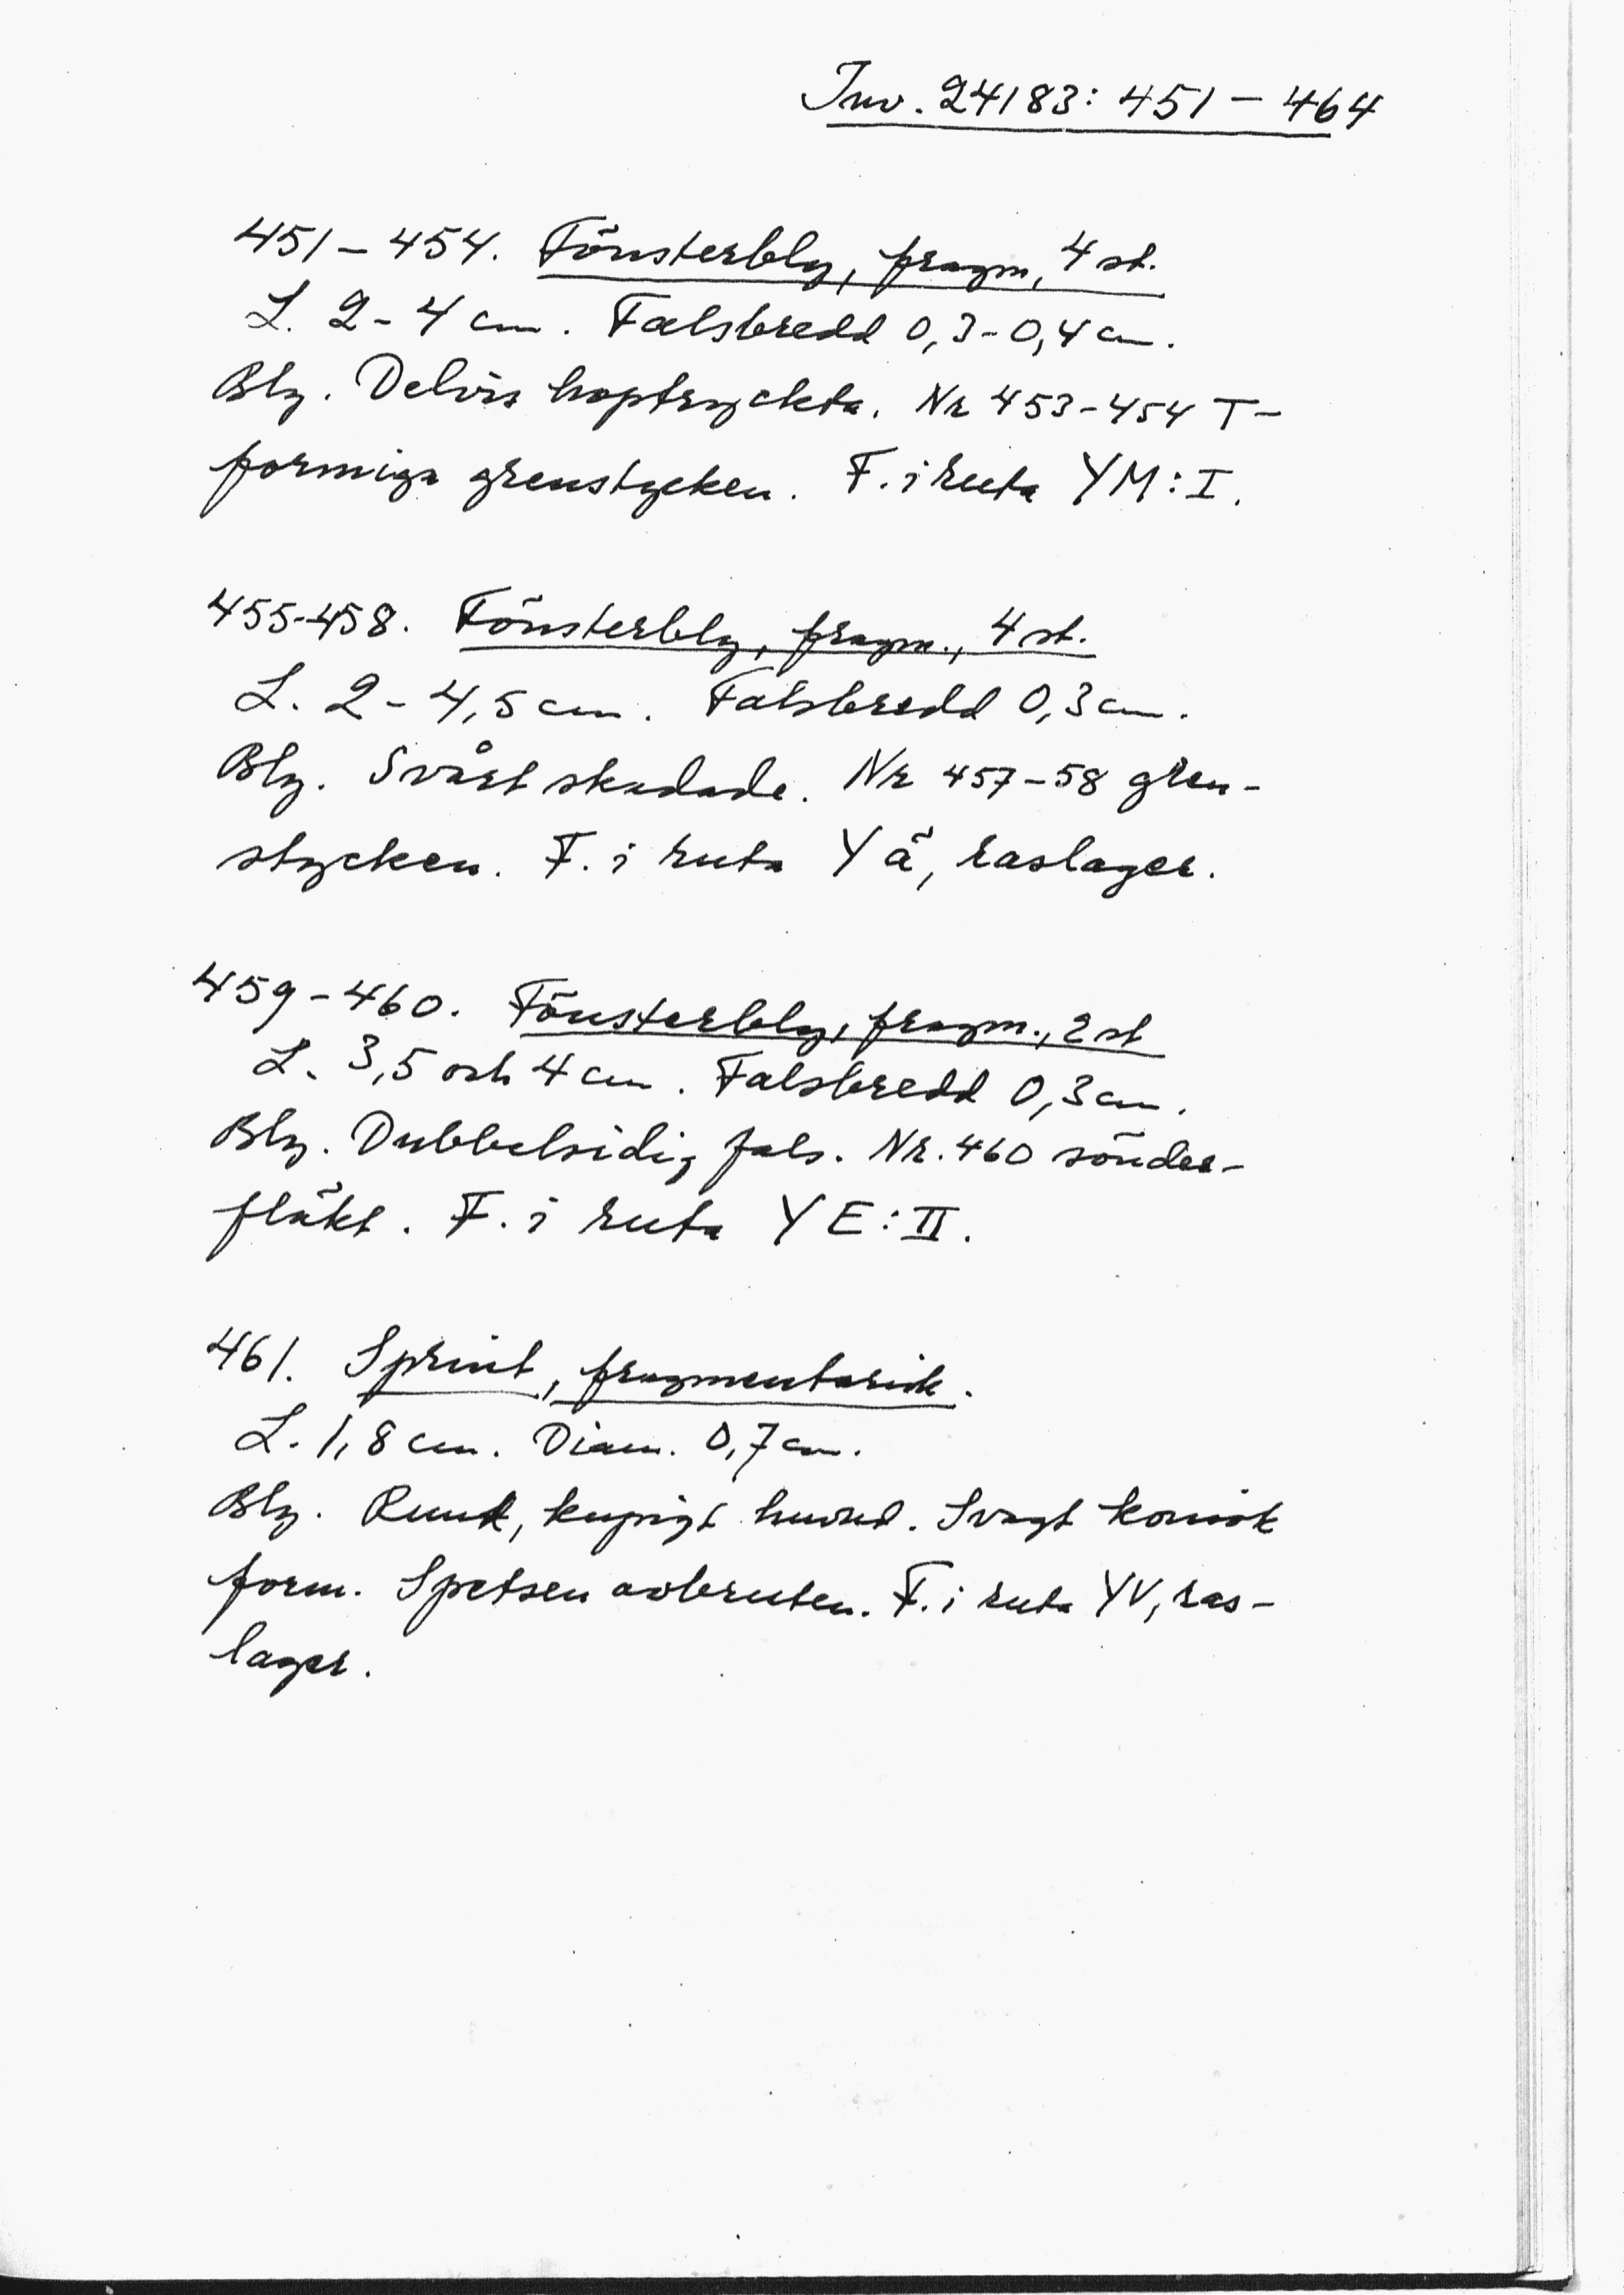 Inv. 24183: 451 – 464
451 – 454. Fönsterbly, fragm, 4 st.
L. 2 - 4 cm. Falsbredd 0,3 - 0,4 cm.
Bly. Delvis hoptryckta. Nr 453-454 T-
formiga grenstycken. F. i ruta YM: I.
455-458. Fönsterbly, fragm., 4 st.
L. 2 - 4,5 cm. Falsbredd 0,3 cm.
Bly. Svårt skadade. Nr 457-58 gren-
stycken. F. i ruta Y ä, raslager.
459 - 460. Fönsterbly, fragm., 2 st
L. 3,5 och 4 cm. Falsbredd 0,3 cm.
Bly. Dubbelsidig fals. Nr. 460 sönder-
fläkt. F. i ruta Y E: II.
461. Sprint, fragmentarisk.
L. 1,8 cm. Diam. 0,7 cm.
Bly. Runt, kupigt huvud. Svagt konisk
form. Spetsen avbruten. F. i ruta YV, ras-
lager.